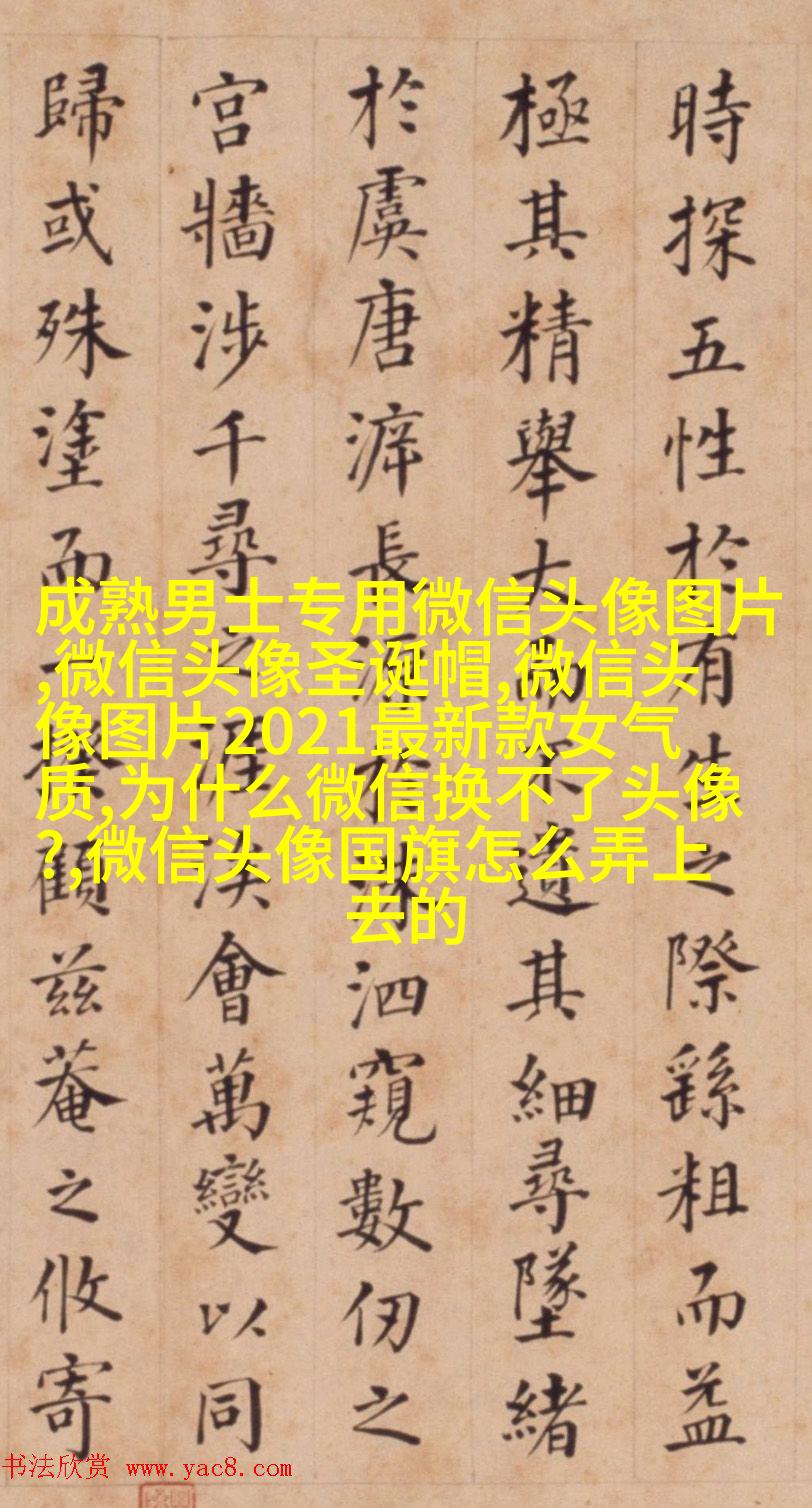 時探五性於有生之際繇粗而益
極其精舉大而不遺其細尋墜緒
於虞唐長源於洙泗窺數仞之
宮牆涉千尋之涯涘會萬變以同
歸或殊塗而一揆顧兹菴之攸寄
成熟男士专用微信头像图片
,微信头像圣诞帽,微信头
像图片2021最新款女气
质,为什么微信换不了头像
?,微信头像国旗怎么弄上
去的
书法欣赏 www.yac8.com